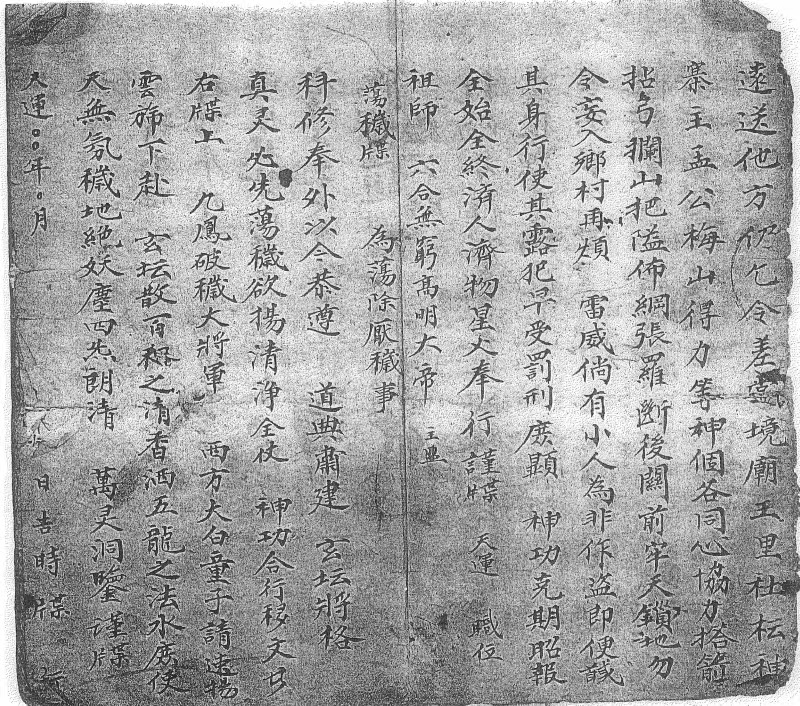 遠送他方仍乞令差當境廟王里社坛神
寨主孟公梅山得力等神個各同心協力搭箭
拈弓攔山把隘佈網張羅斷後關前牢天鎖地勿
令妄入鄉村再煩 雷威倘有小人為非作盗即便誠
其身行使其露犯早受罰刑庶顯 神功克期昭報
全始全終濟人濟物星火奉行謹牒 天運 職位
祖師 六合無窮高明大帝
蕩穢牒 為蕩除厭穢事
科修奉外以今恭遵 道典肅建 玄坛將格
真灵必先蕩穢欲揚清淨全仗 神功合行移文
右牒上 九鳳破穢大將軍 西方大白童子請速揚
雲旆下赴 玄坛散百和之清香洒五龍之法水庶使
天無氛穢地絶妖塵四炁朗清 萬灵洞鑒謹牒
天運○○年○月 日吉時牒 行